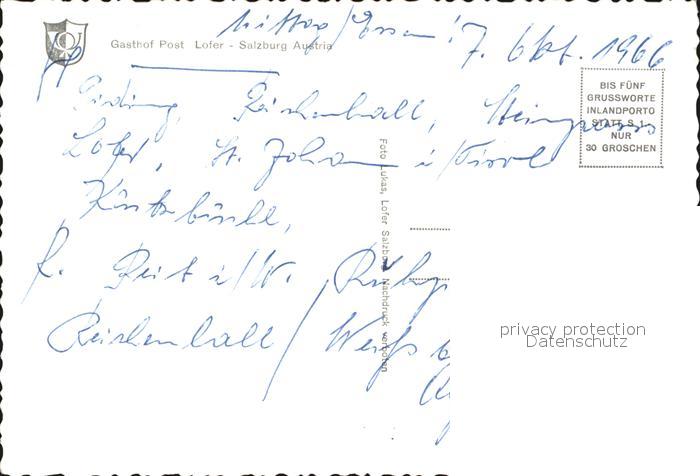 Mittag/Essen! 7. Okt. 1966
Gasthof Post Lofer - Salzburg Austria
BIS FÜNF
GRUSSWORTE
INLANDPORTO
STATT S 1.-
NUR
30 GROSCHEN
Piding, Reichenhall, Steinpass
Lofer, St. Johann i/Tirol
Kitzbühel,
Foto Lukas, Lofer Salzburg Nachdruck verboten
Reit i/W.
Reichenhall / 
privacy protection
Datenschutz